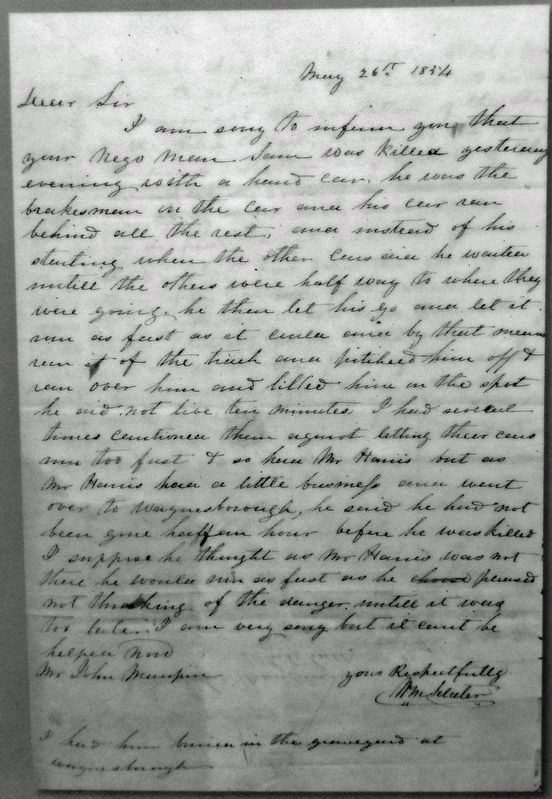 May 26th 1854
Dear Sir
I am sory to inform you that
your Nego man Sam was killed yesterday
evening with a hand car. he was the
brakesman on the car and his car ran
behind all the rest, and instead of his
starting when the other cars did he waited
untill the others were half way to where they
were going. he then let his go and let it
run as fast as it could and by that means
ran it of the track and pitched him off &
ran over him and killed him on the spot
he did not live ten minutes I had several
times cautioned them against letting their cars
run too fast & so had Mr Harris but as
Mr Harris had a little business and went
over to Waynesborough, he said he had not
been gone half an hour before he was killed
I suppose he thought as Mr Harris was not
there he would run as fast as he choose pleased
not thinking of the danger. untill it was
too late. I am very sory but it cant be
helped now
Mr John Maupin yours Respectfully
Wm
I had him buried in the graveyard at
Waynesborough